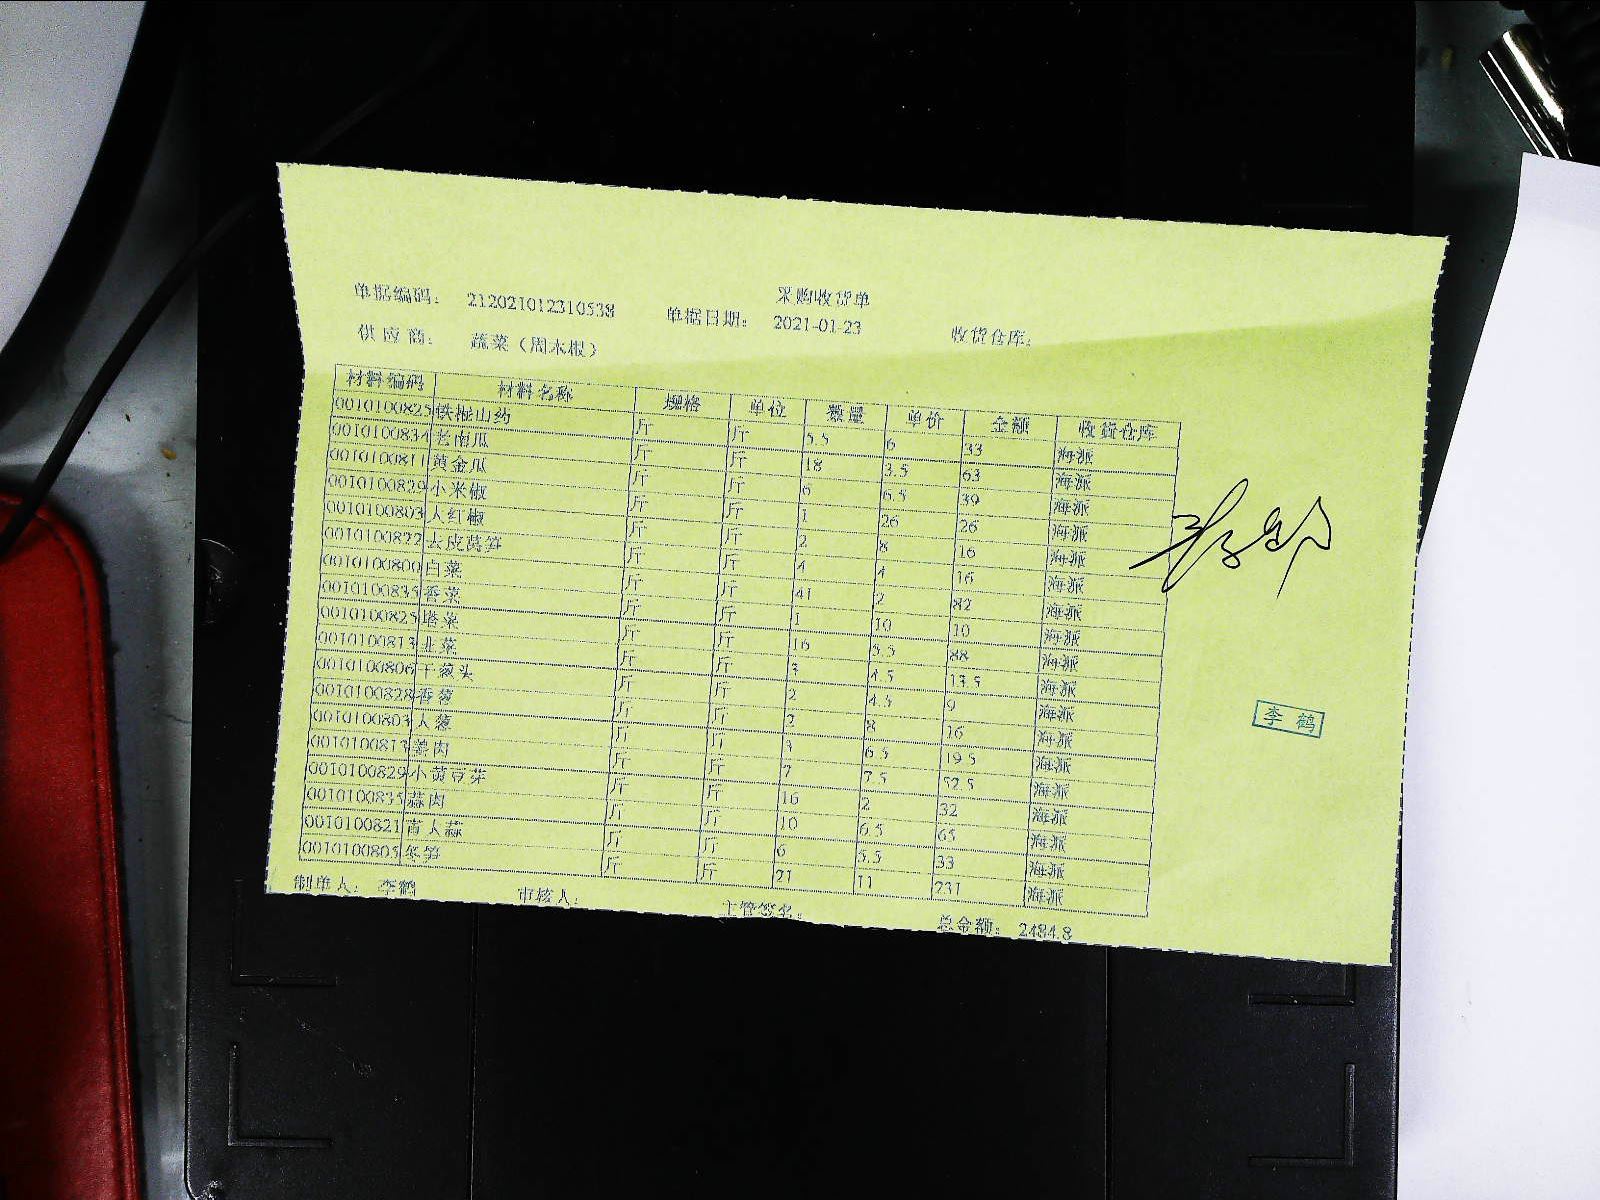 采购收货单
单据编码: 212021012310538 单据日期: 2021-01-23 收货仓库:
供应商: 蔬菜（周木根）
材料编码 材料名称 规格 单位 数量 单价 金额 收货仓库
0010100825 铁棍山药 斤 斤 5.5 6 33 海派
0010100834 老南瓜 斤 斤 18 3.5 63 海派
0010100811 黄金瓜 斤 斤 6 6.5 39 海派
0010100829 小米椒 斤 斤 1 26 26 海派
0010100803 大红椒 斤 斤 2 8 16 海派
0010100822 去皮莴笋 斤 斤 4 4 16 海派
0010100800 白菜 斤 斤 41 2 82 海派
0010100835 香菜 斤 斤 1 10 10 海派
0010100825 塔菜 斤 斤 16 5.5 88 海派
0010100813 韭菜 斤 斤 3 4.5 13.5 海派
0010100806 干葱头 斤 斤 2 4.5 9 海派
0010100828 香葱 斤 斤 2 8 16 海派
0010100803 大葱 斤 斤 3 6.5 19.5 海派
0010100813 姜肉 斤 斤 7 7.5 52.5 海派
0010100829 小黄豆芽 斤 斤 16 2 32 海派
0010100835 蒜肉 斤 斤 10 6.5 65 海派
0010100821 青大蒜 斤 斤 6 5.5 33 海派
0010100805 冬笋 斤 斤 21 11 231 海派
制单人: 李鹤 审核人: 主管签名: 总金额: 2484.8
李鹤